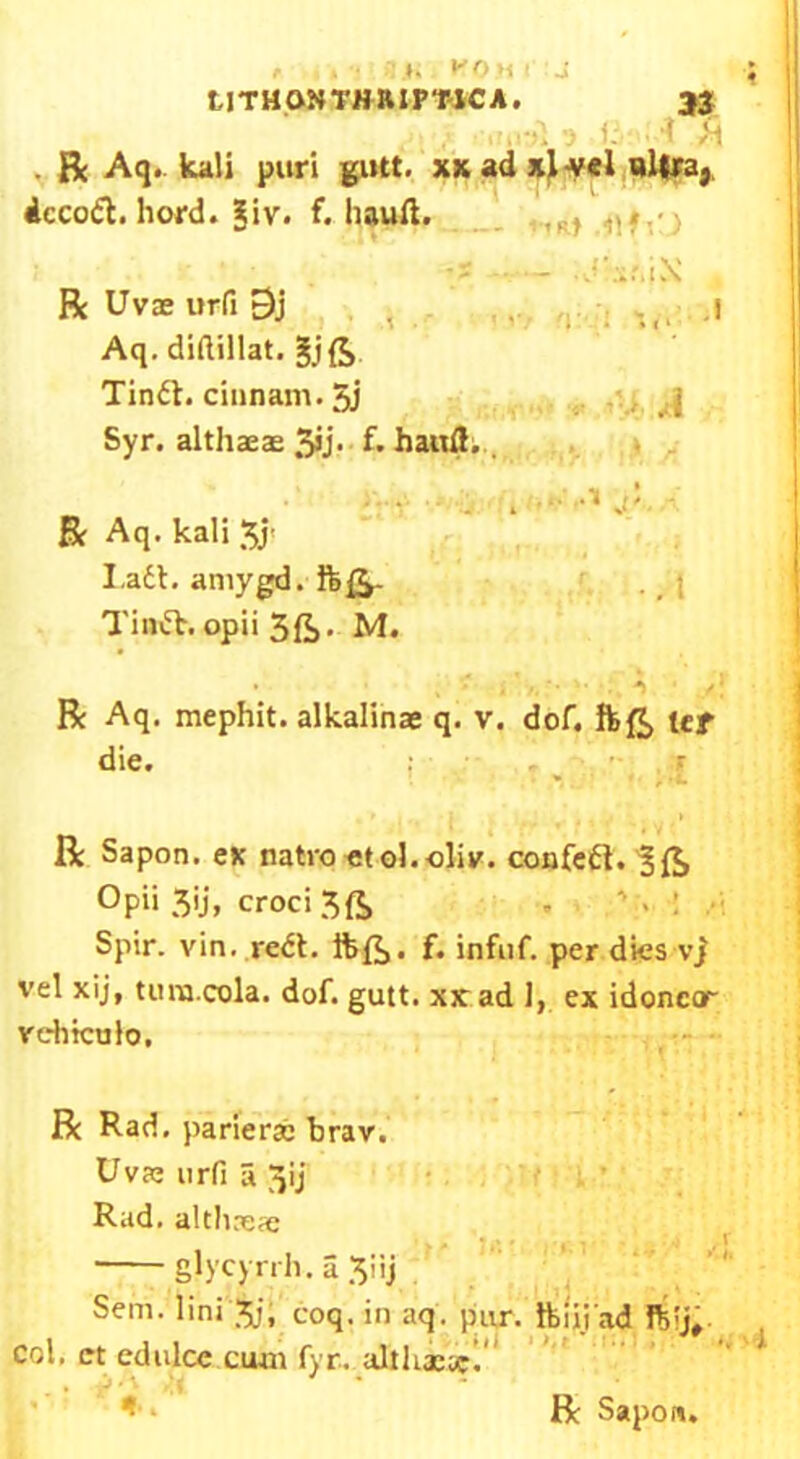 LITHONTHRIPTICA. 33
℞ Aq. kali puri gutt. xx ad xl vel ultra,
decoct. hord. ℥iv. f. hauſt.
℞ Uvæ urſi ℈j
Aq. diſtillat. ℥jß
Tinct. cinnam. ʒj
Syr. althææ ʒij. f. hauſt.
℞ Aq. kali ʒj
Lact. amygd. ℔ß
Tinct. opii ʒß. M.
℞ Aq. mephit. alkalinæ q. v. doſ. ℔ß ter
die.
℞ Sapon. ex natro et ol. oliv. confect. ℥ß
Opii ʒij, croci ʒß
Spir. vin. rect. ℔ß. f. infuſ. per dies vj
vel xij, tum cola. doſ. gutt. xx ad l, ex idoneo
vehiculo.
℞ Rad. parieræ brav.
Uvæ urſi ā ʒij
Rad. althææ
—— glycyrrh. ā ʒiij
Sem. lini ʒj, coq. in aq. pur. ℔iij ad ℔ij,
col. et edulce cum ſyr. althææ.
℞ Sapon.